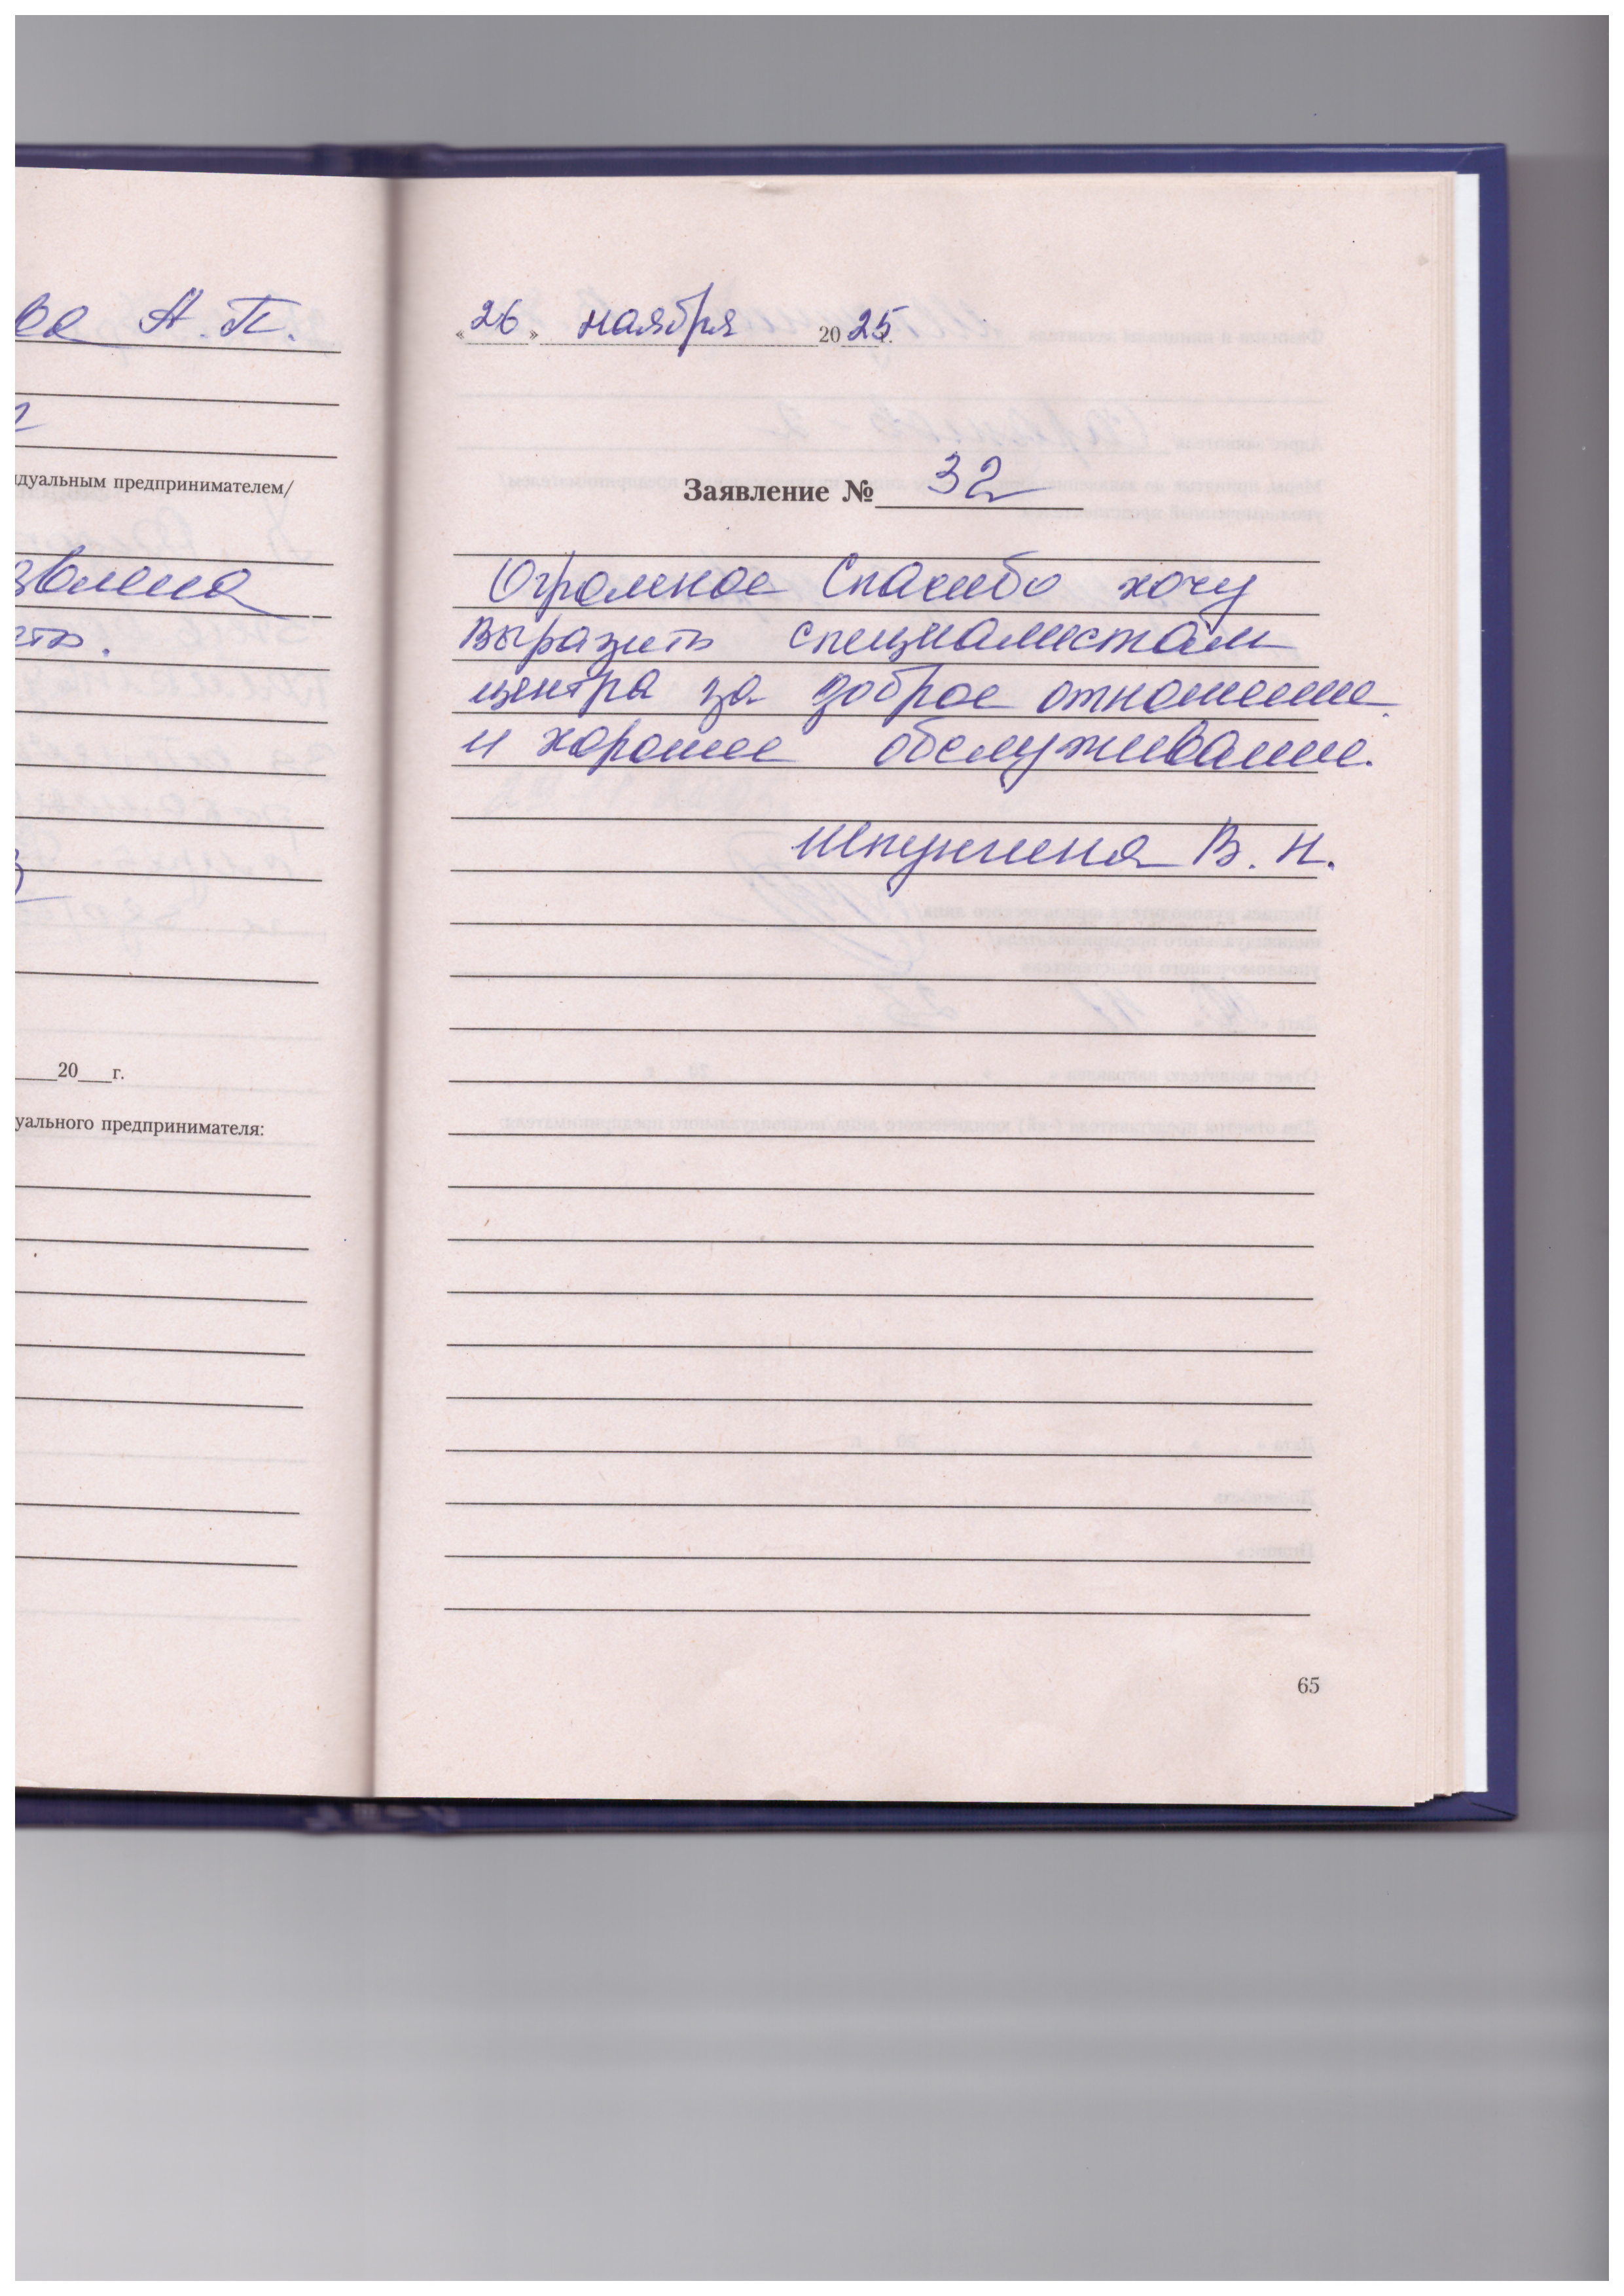 А. П.
идуальным предпринимателем/
20___г.
уального предпринимателя:
«26» ноября 2025г.
Заявление № 32
Огромное Спасибо хочу
выразить специалистам
центра за доброе отношение
и хорошее обслуживание.
В. Н.
65